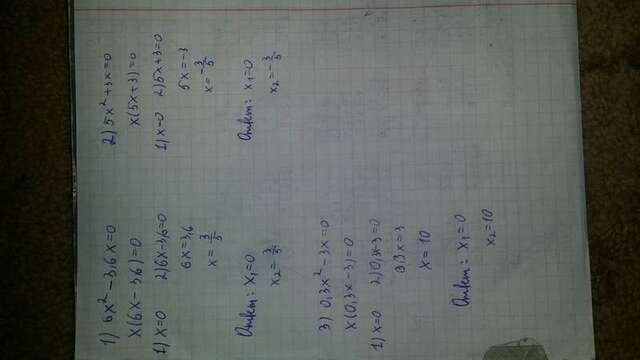 1) 6x² - 3,6x = 0
x(6x - 3,6) = 0
1) x = 0 2) 6x - 3,6 = 0
6x = 3,6
x = 3/5
Ответ: x₁ = 0
x₂ = 3/5
2) 5x² + 3x = 0
x(5x + 3) = 0
1) x = 0 2) 5x + 3 = 0
5x = -3
x = -3/5
Ответ: x₁ = 0
x₂ = -3/5
3) 0,3x² - 3x = 0
x(0,3x - 3) = 0
1) x = 0 2) 0,3x - 3 = 0
0,3x = 3
x = 10
Ответ: x₁ = 0
x₂ = 10